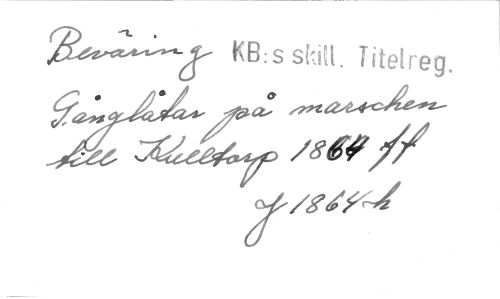 Beväring KB:s skill. Titelreg.
Gånglåtar på marschen
till Kulltorp 1864 ff
J 1864 h